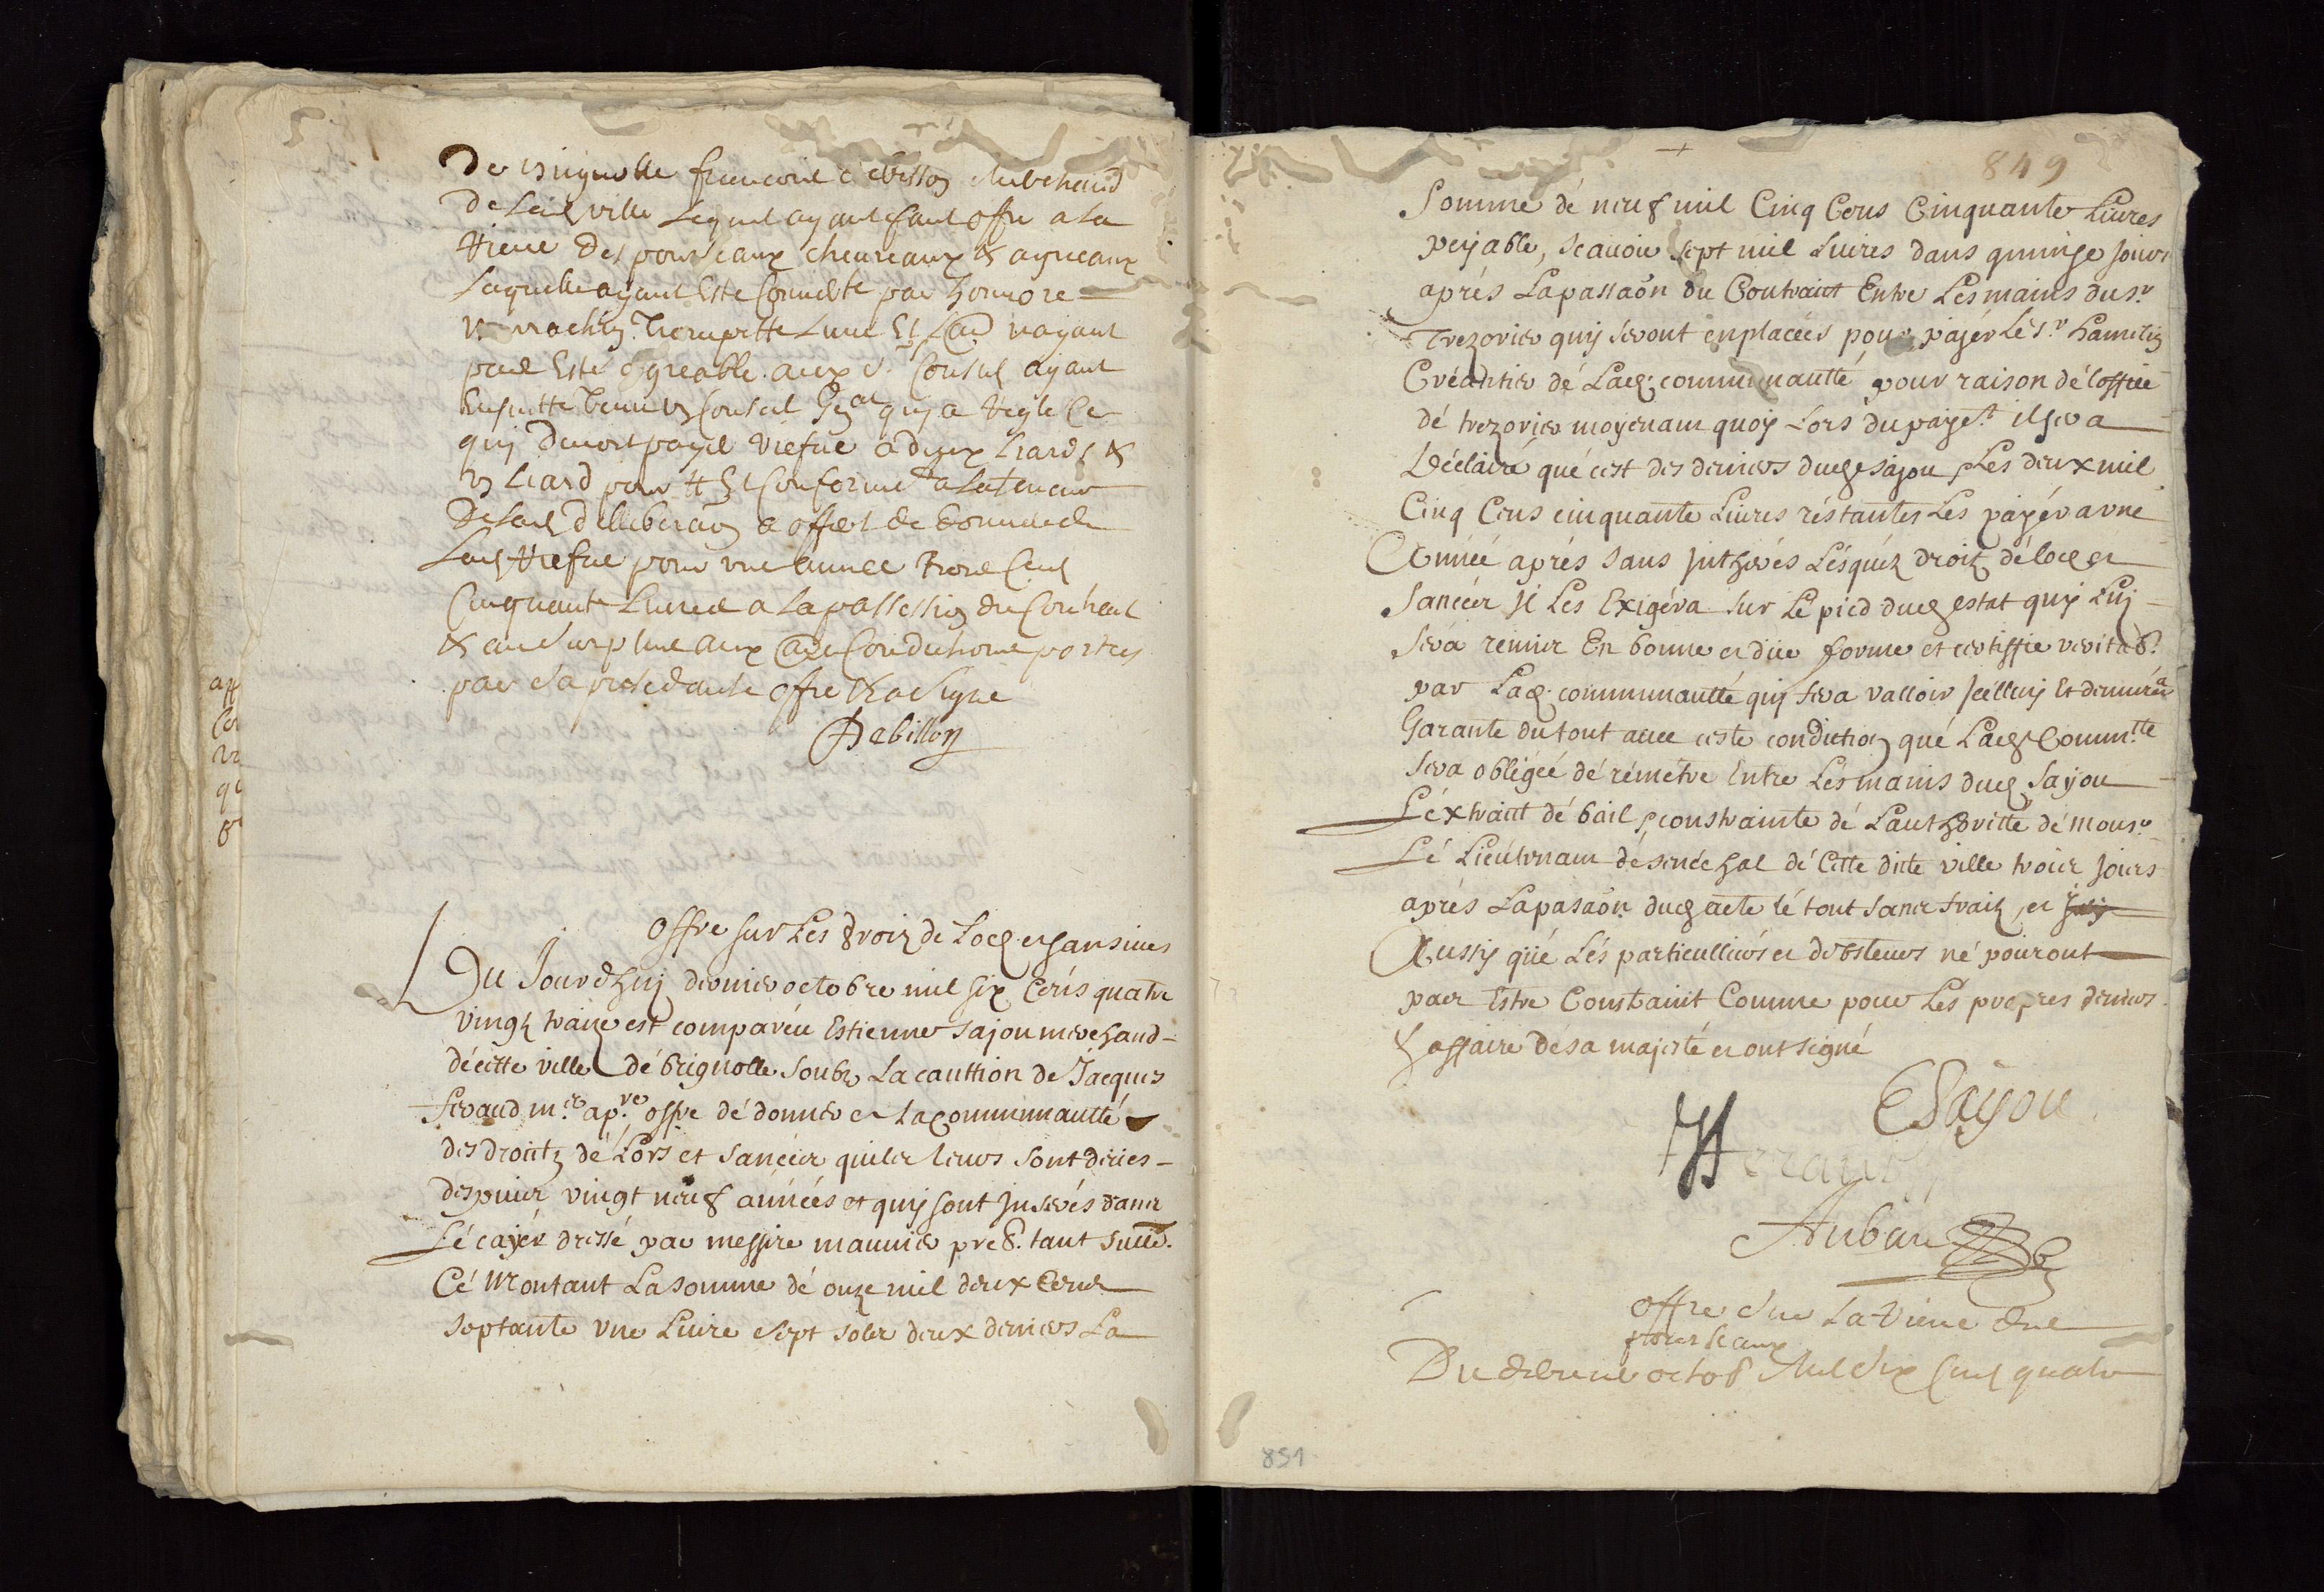 De Brignolle francois debillon Marchand
De lad ville lequel ayant fait offre a la
Rieue des pourseaux cheureaux & agneaux
Laquelle ayant Este par honnore
trompette nayant
pas Este agreable aux Sr Consuls ayant
Ensuitte tenu un Conseil Gnal quy a regle Ce
quy deuoit payer a deux liards &
un liard pour Conforme a la teneur
De lad deliberaon a offert de donner de
Lad Riefue pour une annee Trois Cens
Cinquante Liures a la passation du Contract
& au surplus aux Conditions portees
par sa precedante offre & a signe
Debillon
offre sur Les droiz de Lodz et sansines
Du Jourdhuy dernier octobre mil six Cens quatre
vingz traize est comparéu Estienne Sajou merchand
décitte ville dé brignolle soubz La cauttion de Jacques
m.e ap.re offre dé donner a La Communautté
des droictz dé Lods et sancéer quiler leurs sont deües
despuier vingt neuf années et quy sont Inserés dans
Lé cayér dressé par messire maunier preb. tant
Cé Montant La Somme dé onze mil deux Cens
soptante vne Liure sept soler deux deniers La
849
Somme dé neuf mil Cinq Cens Cinquante Liures
peyable, scauoir sept mil Liures dans quinze Jours
aprés Lapassaon du Contraict Entre Les mains du sr
Trezorier quy seront enplacées pour, payér Le sr hamelin
Créantier dé Lad. communautté pour raison dé loffice
dé trezorier moyenant quoy Lors du paye.t il sera
Déclairé qué cest des deniers dud Sajou, Les deux mil
Cinq Cens cinquante Liures réstantes Les payér a vne
Année aprés sans Inthérés Lésquéz droiz dé lodz et
Sancéer il Les Exigéra sur Le pied dud estat quy Luy
séra remier En bonne et düe forme et certiffie veritab.
par Lad. communautté quy fera valloir Icelluy Et demurera
Garante du tout auec ceste condiction qué Lad Commtte
sera obligéé dé rémétre Entre Lés mains dud Sayou
Léxtraict dé bail & constrainte dé Lauthoritté dé Monsr
Lé Lieutenant dé sénéchal dé Citte ditte ville troier Jours
aprés Lapasaon dud acte lé tout sancr fraiz, et
Aussy qué Lés particulliers et débsteurs né pouront
par Estre Constraint Comme pour Les propres deniers
& affaire dé sa majesté et ont signé
E Sayou
Aubare
offre sur La rieue des
pourseaux
Du octob Mil six Cens quatre
851